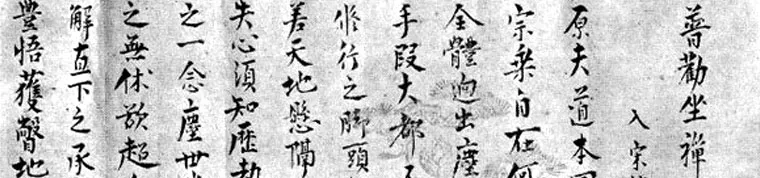 普勸坐禪
入宋
原夫道本
宗乘自在何
全體逈出塵
手段大都
修行之脚頭
若天地懸隔
失心須知歷劫
之一念塵世
之無休欲超
解直下之承
豊悟獲瞥地